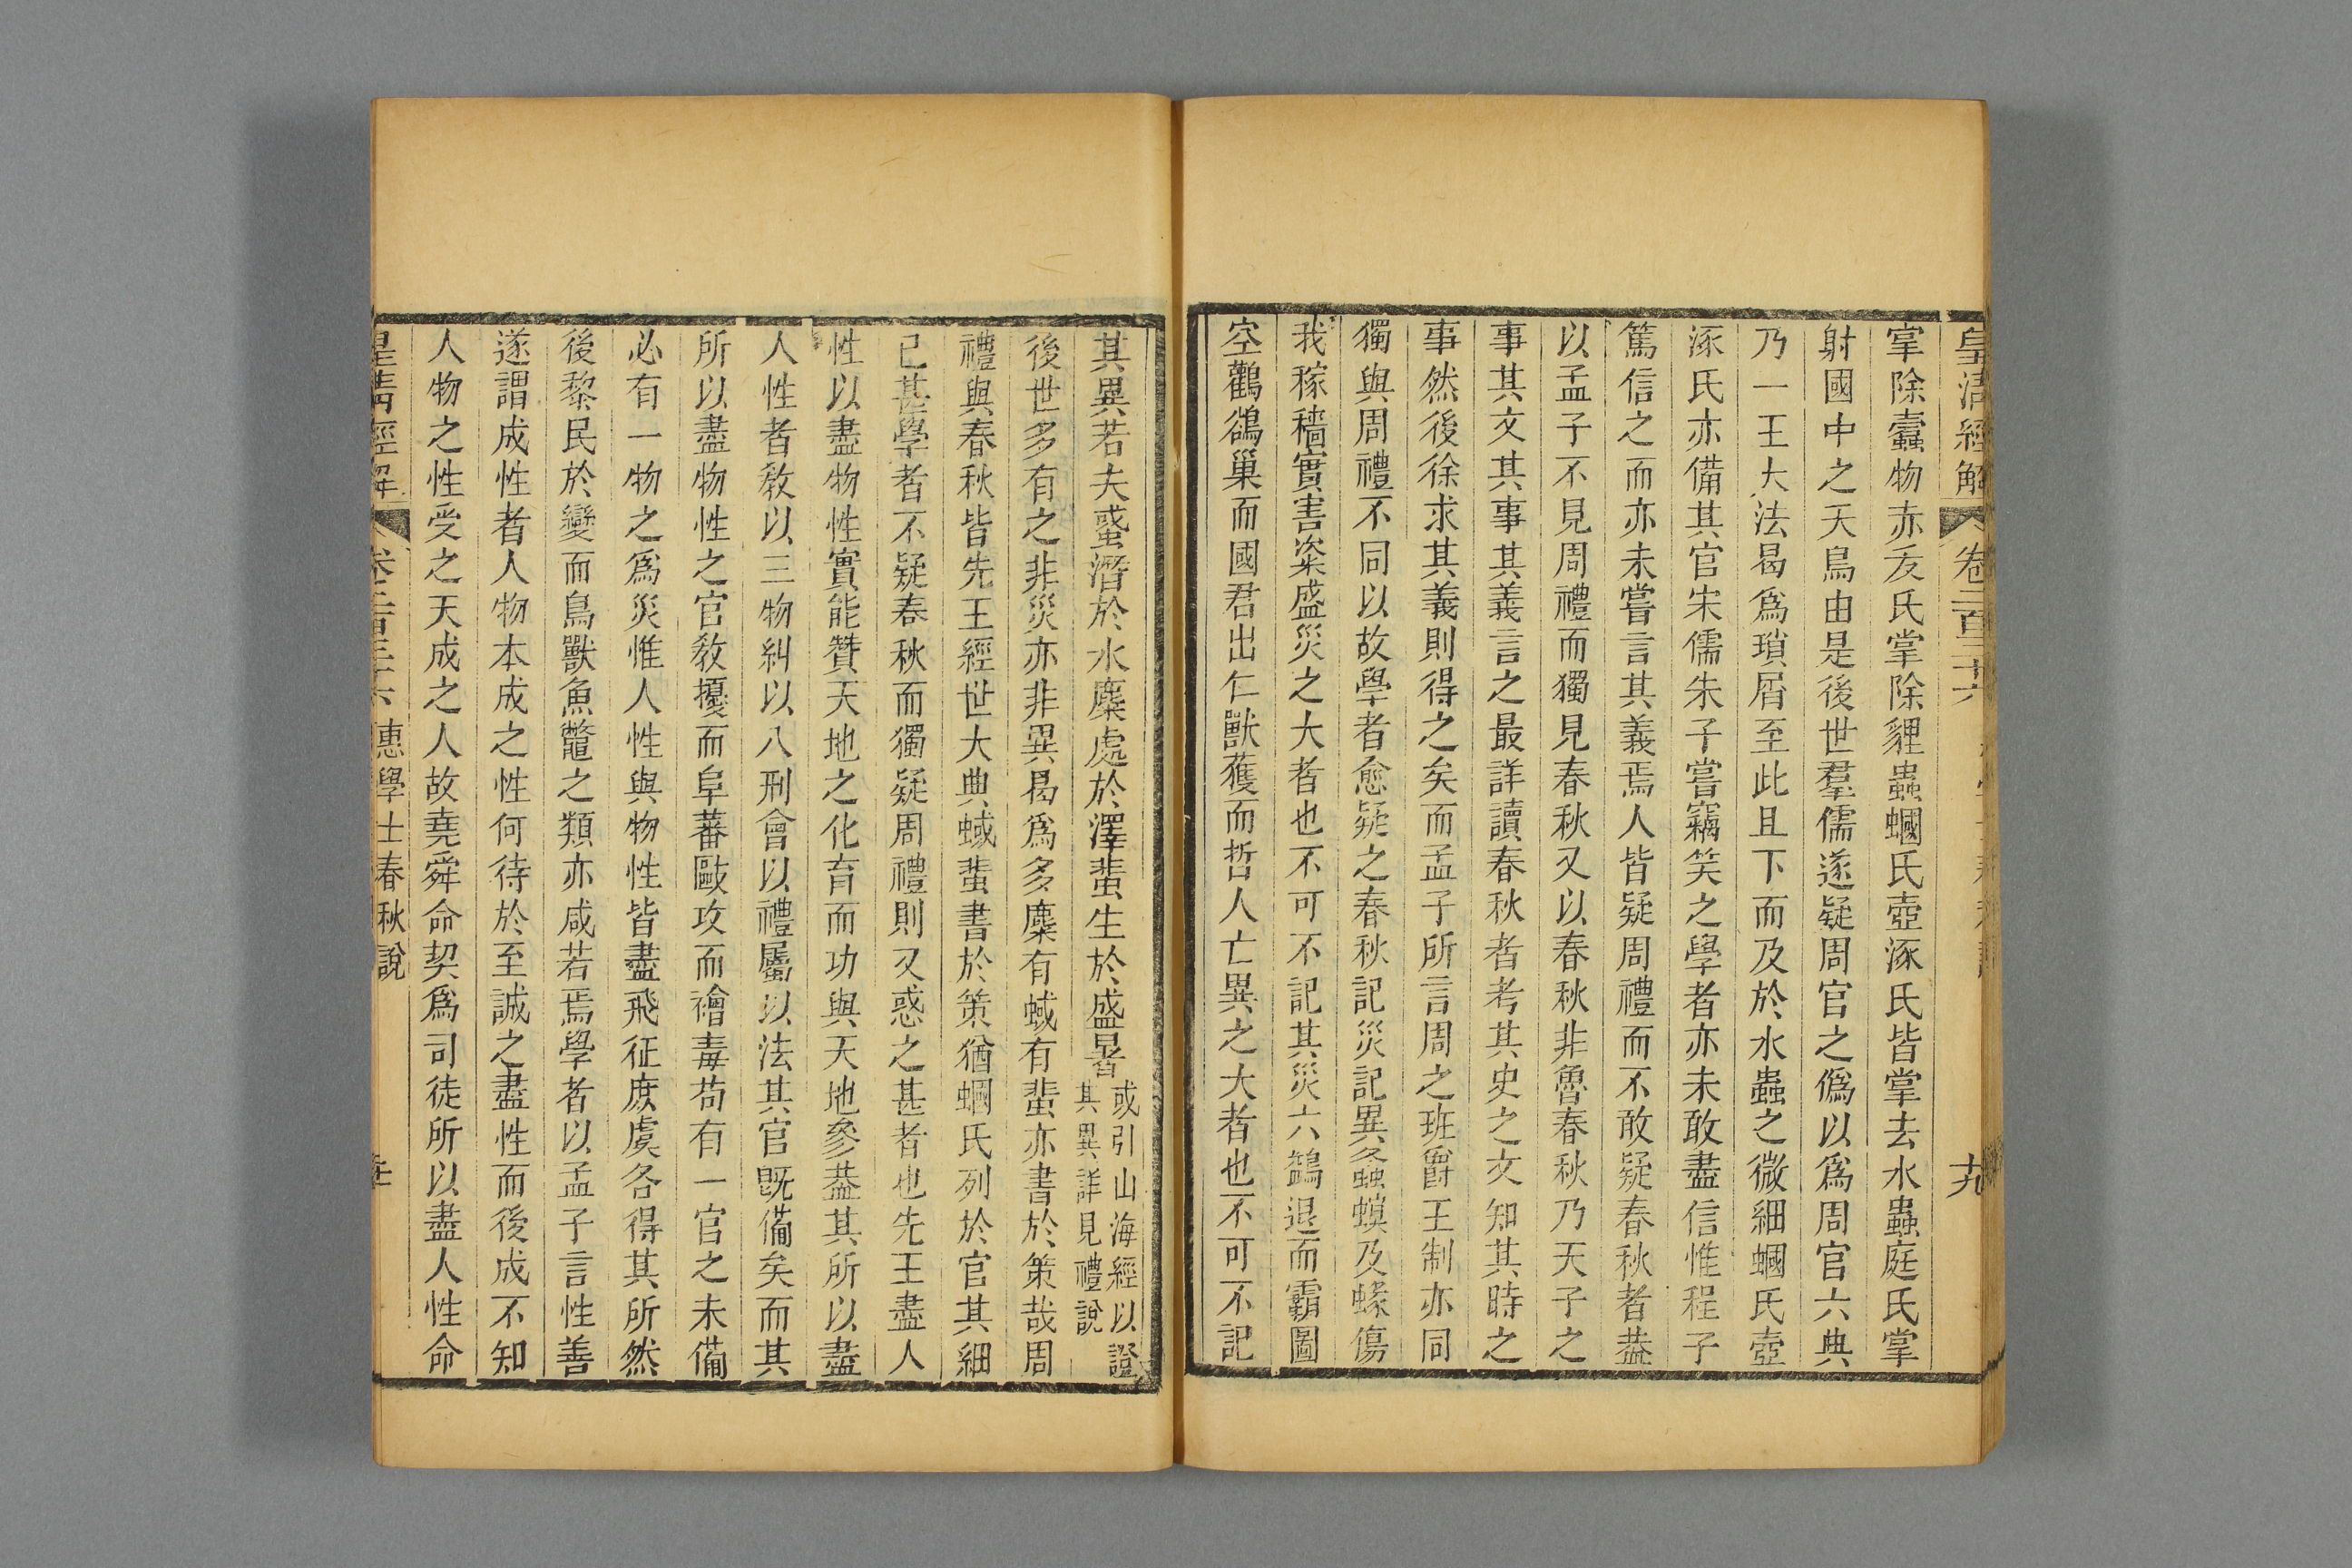 皇清經解 卷二百三十六 十九
掌除蠹物赤犮氏掌除貍蟲蟈氏壺涿氏皆掌去水蟲庭氏掌
射國中之夭鳥由是後世羣儒遂疑周官之僞以爲周官六典
乃一王大法曷爲瑣屑至此且下而及於水蟲之微細蟈氏壺
涿氏亦備其官宋儒朱子嘗竊笑之學者亦未敢盡信惟程子
篤信之而亦未嘗言其義焉人皆疑周禮而不敢疑春秋者葢
以孟子不見周禮而獨見春秋又以春秋非魯春秋乃天子之
事其文其事其義言之最詳讀春秋者考其史之文知其時之
事然後徐求其義則得之矣而孟子所言周之班爵王制亦同
獨與周禮不同以故學者愈疑之春秋記災記異螽螟及蝝傷
我稼穡實害粢盛災之大者也不可不記其災六鷁退而霸圖
空鸛鵒巢而國君出仁獸獲而哲人亡異之大者也不可不記
其異若夫蜮潛於水麋處於澤蜚生於盛暑或引山海經以證其異詳見禮說
後世多有之非災亦非異曷爲多麋有蜮有蜚亦書於策哉周
禮與春秋皆先王經世大典蜮蜚書於策猶蟈氏列於官其細
已甚學者不疑春秋而獨疑周禮則又惑之甚者也先王盡人
性以盡物性實能贊天地之化育而功與天地參葢其所以盡
人性者敎以三物糾以八刑會以禮屬以法其官旣備矣而其
所以盡物性之官敎擾而阜蕃敺攻而禬毒苟有一官之未備
必有一物之爲災惟人性與物性皆盡飛征庶虞各得其所然
後黎民於變而鳥獸魚鼈之類亦咸若焉學者以孟子言性善
遂謂成性者人物本成之性何待於至誠之盡性而後成不知
人物之性受之天成之人故堯舜命契爲司徒所以盡人性命
皇清經解 卷二百三十六 惠學士春秋說